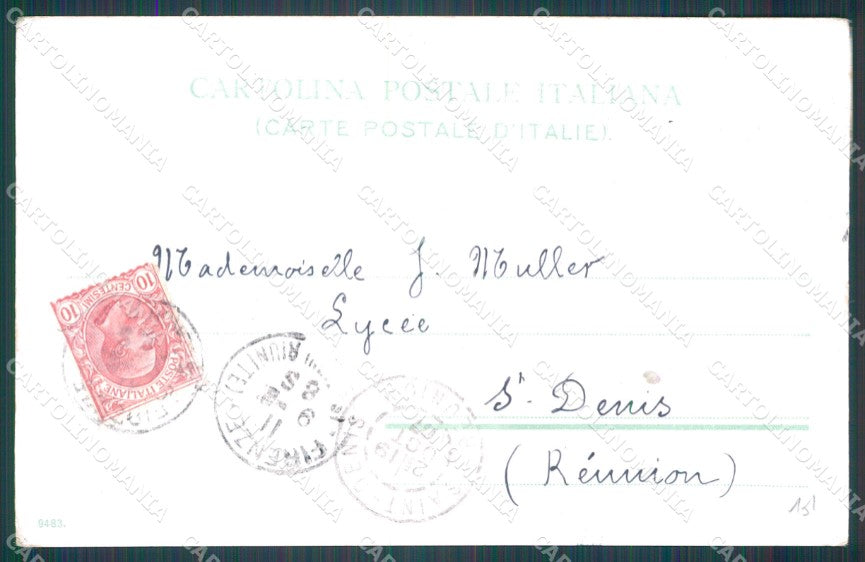 CARTOLINA POSTALE ITALIANA
(CARTE POSTALE D'ITALIE).
Mademoiselle J. Muller
Lycée
St Denis
(Réunion)
10 CENTESIMI 10
POSTE ITALIANE
FIRENZE
(RIUNITE)
SAINT-DENIS
RÉUNION
9483.
CARTOLINOMANIA